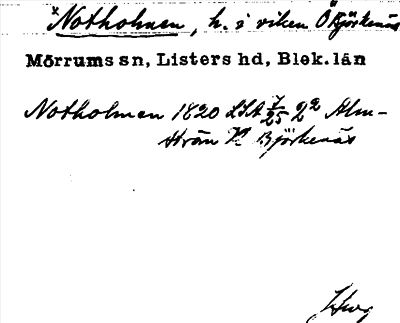 x Notholmen, h. i viken Ö Björkenäs
Mörrums sn, Listers hd, Blek. län
Notholmen 1820 LSA 7/25 2² Alm-
ström K Björkenäs